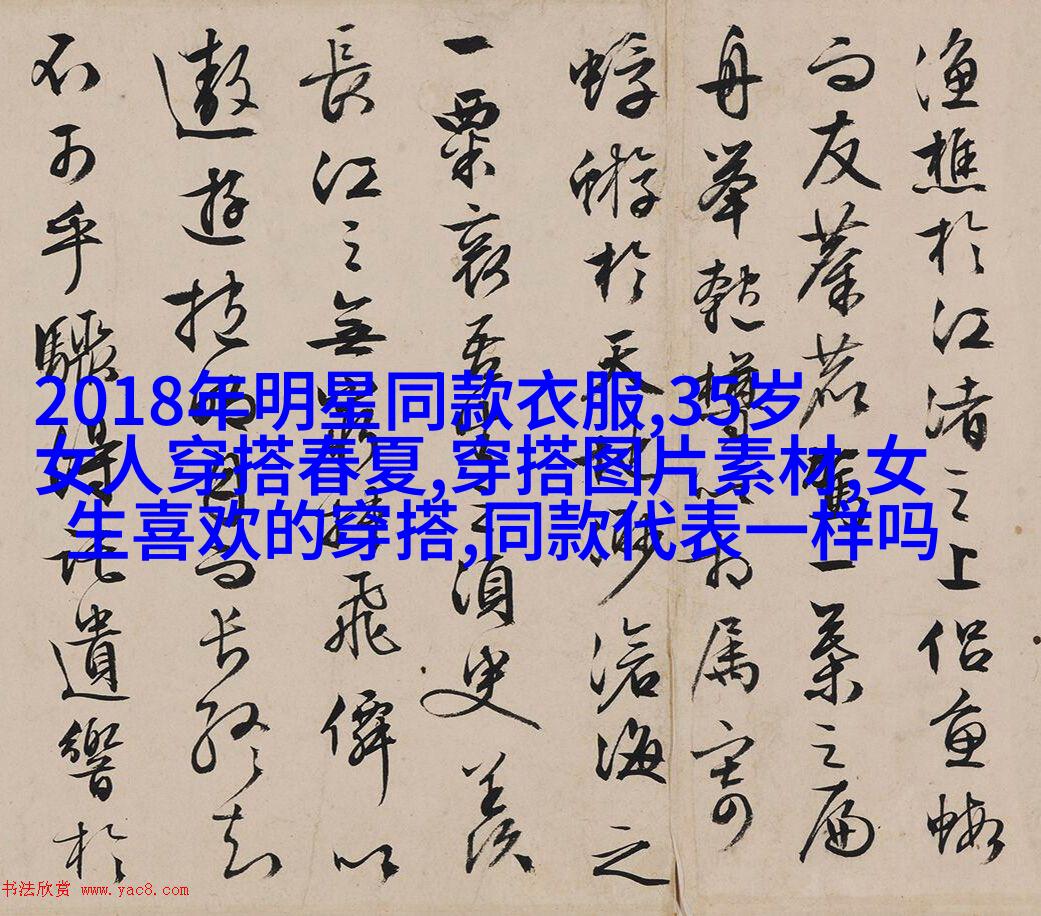 漁樵於江渚之上侣魚蝦
而友麋鹿駕一葉之扁
舟舉匏樽以相属寄
蜉蝣於天地眇滄海之
一粟哀吾生之須臾羡
長江之無窮挾飛僊以
遨遊抱明月而長終知
不可乎驟得託遺響於
2018年明星同款衣服,35岁
女人穿搭春夏,穿搭图片素材,女
生喜欢的穿搭,同款代表一样吗
书法欣赏 www.yac8.com